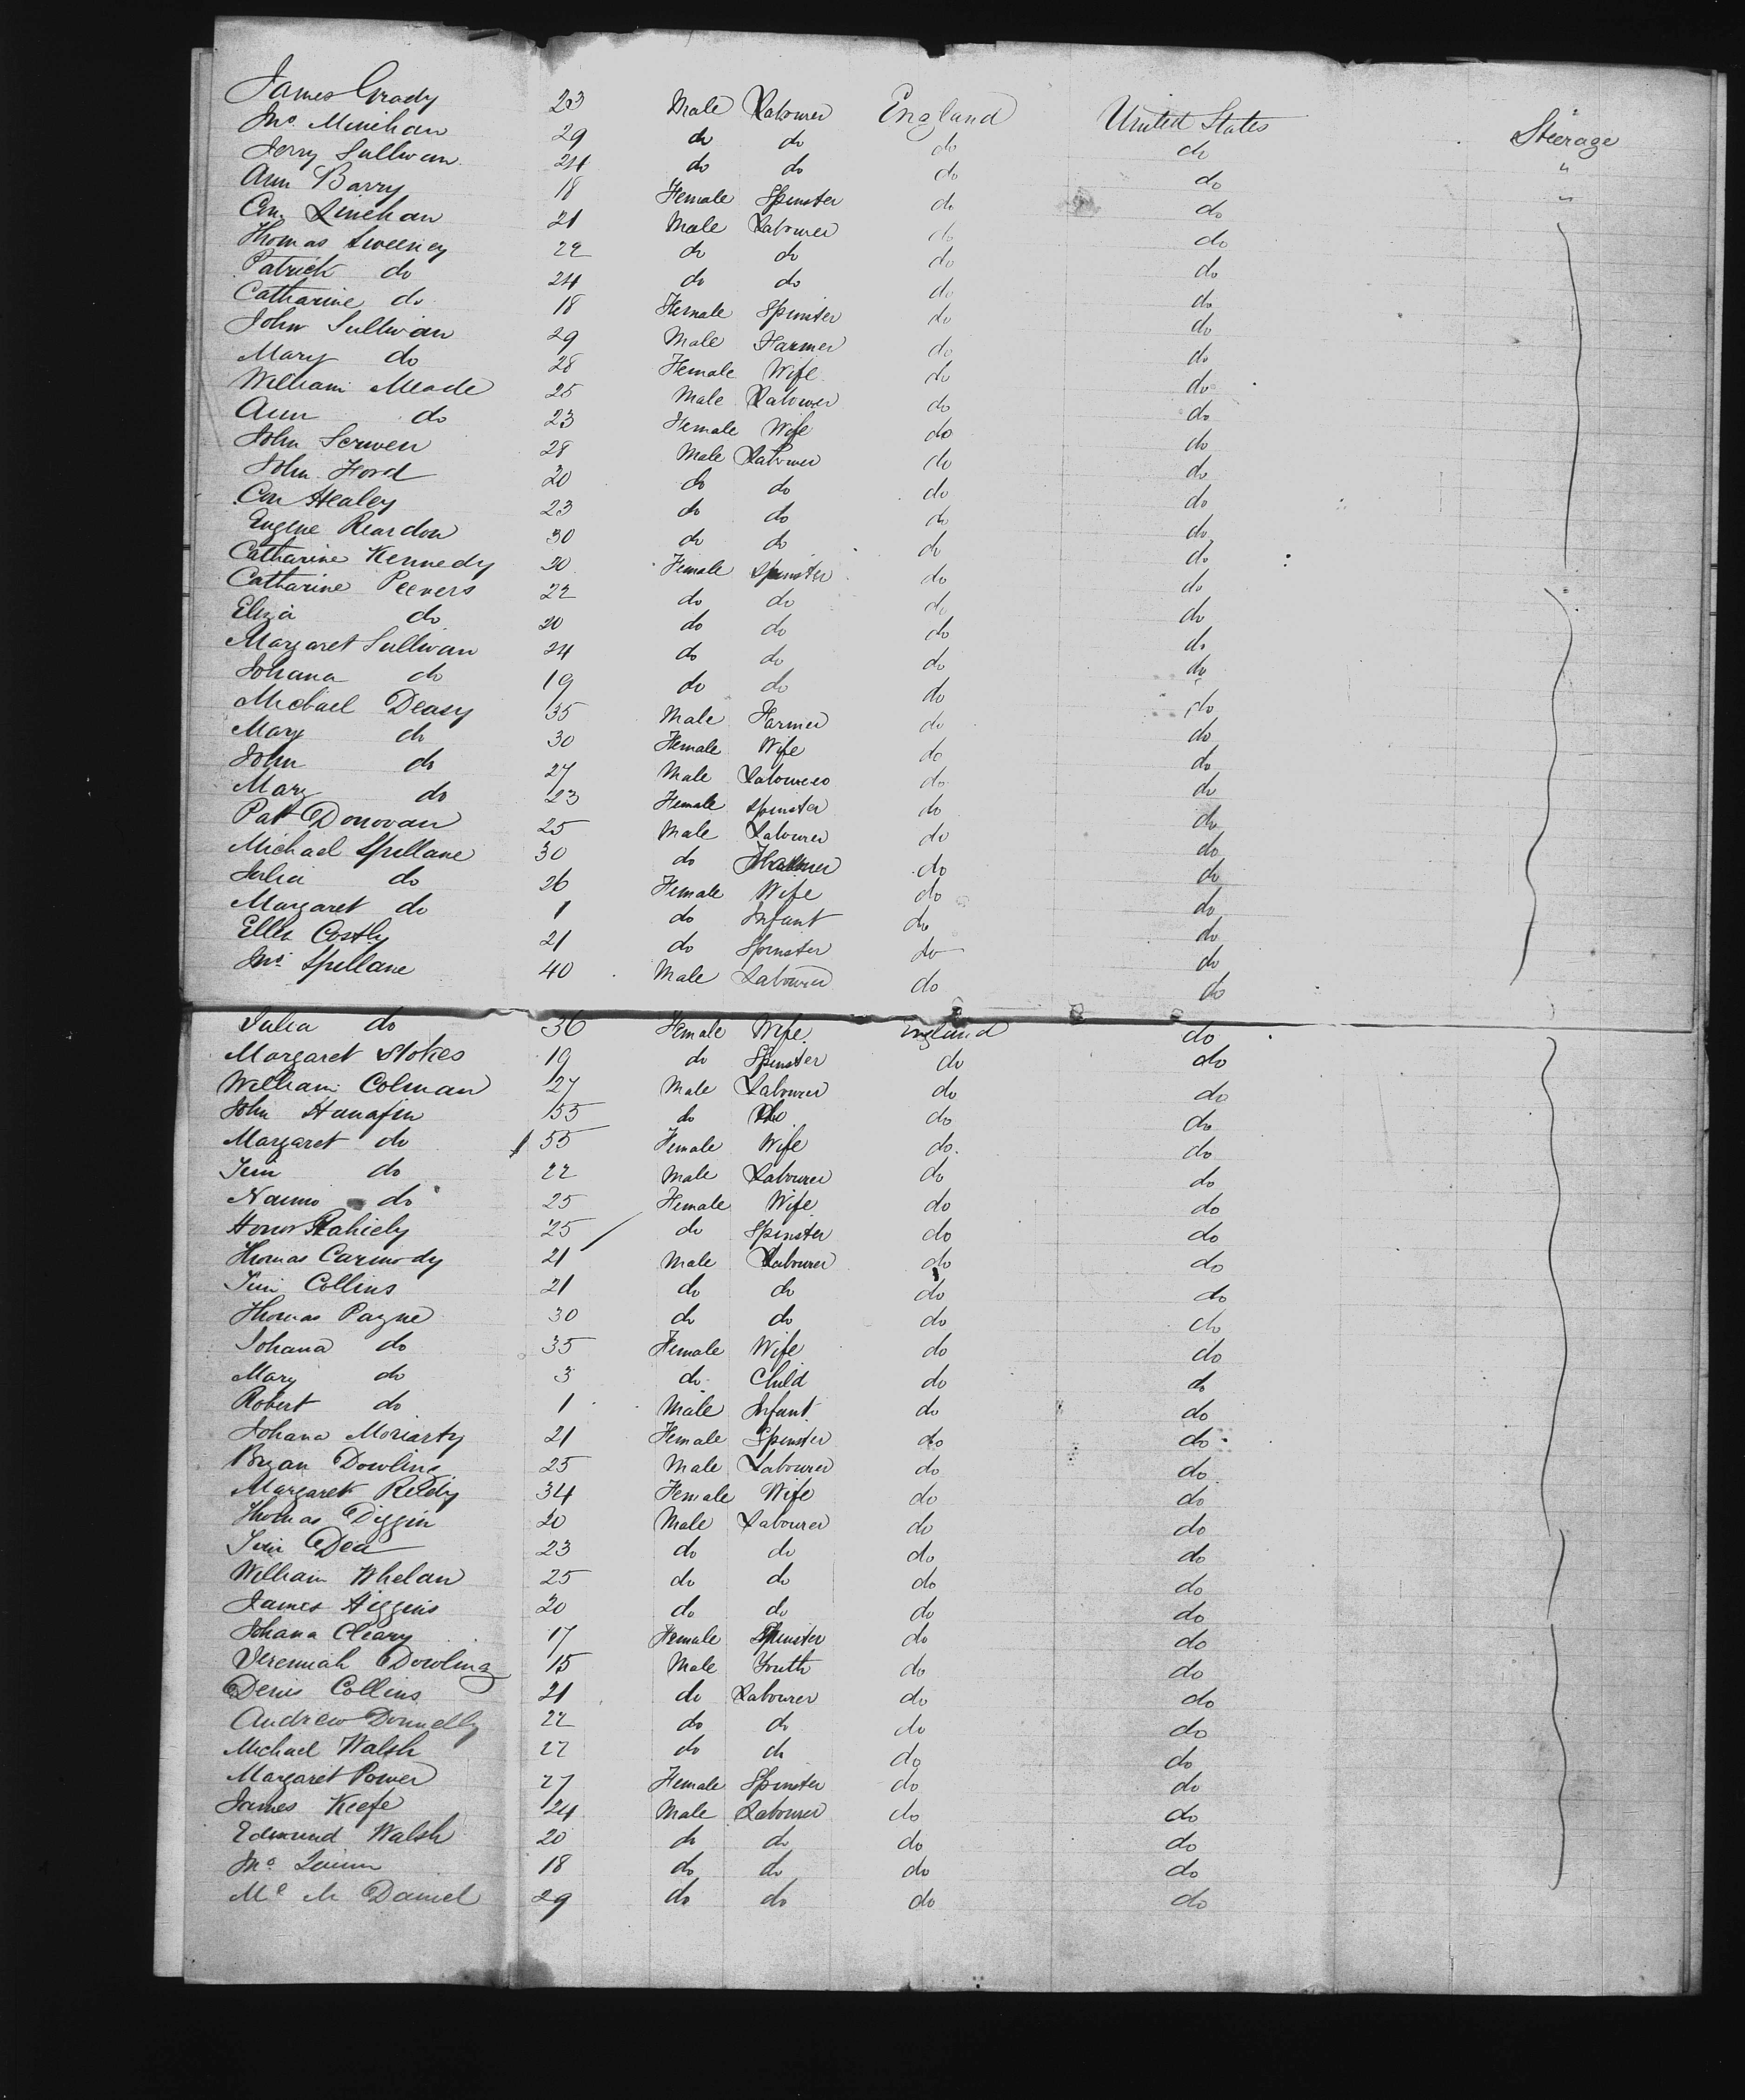 James Grady 23 Male Labourer England United States Steerage
Jno. Minihan 29 do do do do "
Jerry Sullivan 24 do do do do "
Ann Barry 18 Female Spinster do do
Con. Linehan 21 Male Labourer do do
Thomas Sweeney 22 do do do do
Patrick do 24 do do do do
Catharine do 18 Female Spinster do do
John Sullivan 29 Male Farmer do do
Mary do 28 Female Wife do do
William Meade 25 Male Labourer do do
Ann do 23 Female Wife do do
John 28 Male Labourer do do
John Ford 20 do do do do
Con Healey 23 do do do do
Eugene Reardon 30 do do do do
Catharine Kennedy 20 Female Spinster do do
Catharine Peevers 22 do do do do
Eliza do 20 do do do do
Margaret Sullivan 24 do do do do
Johana do 19 do do do do
Michael Deasy 35 Male Farmer do do
Mary do 30 Female Wife do do
John do 27 Male Labourer do do
Mary do 23 Female Spinster do do
Pat Donovan 25 Male Labourer do do
Michael Spillane 30 do do do
Julia do 26 Female Wife do do
Margaret do 1 do Infant do do
Ellen Costly 21 do Spinster do do
Jno. Spillane 40 Male Labourer do do
Julia do 36 Female Wife England do
Margaret Stokes 19 do Spinster do do
William Colman 27 Male Labourer do do
John Hanafin 55 do do do do
Margaret do 55 Female Wife do do
Jim do 22 Male Labourer do do
Nanno do 25 Female Wife do do
Honor 25 do Spinster do do
Thomas Carmody 21 Male Labourer do do
Jim Collins 21 do do do do
Thomas Payne 30 do do do do
Johana do 35 Female Wife do do
Mary do 3 do Child do do
Robert do 1 Male Infant do do
Johana Moriarty 21 Female Spinster do do
Bryan Dowling 25 Male Labourer do do
Margaret Reidy 34 Female Wife do do
Thomas Diggin 20 Male Labourer do do
Jim Dea 23 do do do do
William Whelan 25 do do do do
James Higgins 20 do do do do
Johana Cleary 17 Female Spinster do do
Jeremiah Dowling 15 Male Youth do do
Denis Collins 21 do Labourer do do
Andrew Donnelly 22 do do do do
Michael Walsh 22 do do do do
Margaret Power 27 Female Spinster do do
James Keefe 24 Male Labourer do do
Edmund Walsh 20 do do do do
Jno. Quinn 18 do do do do
Daniel 29 do do do do